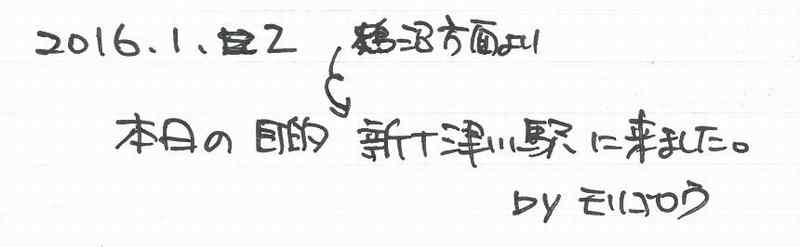 2016.1.2 鶴沼方面より
本日の目的 新十津川駅に来ました。
by モリコロウ